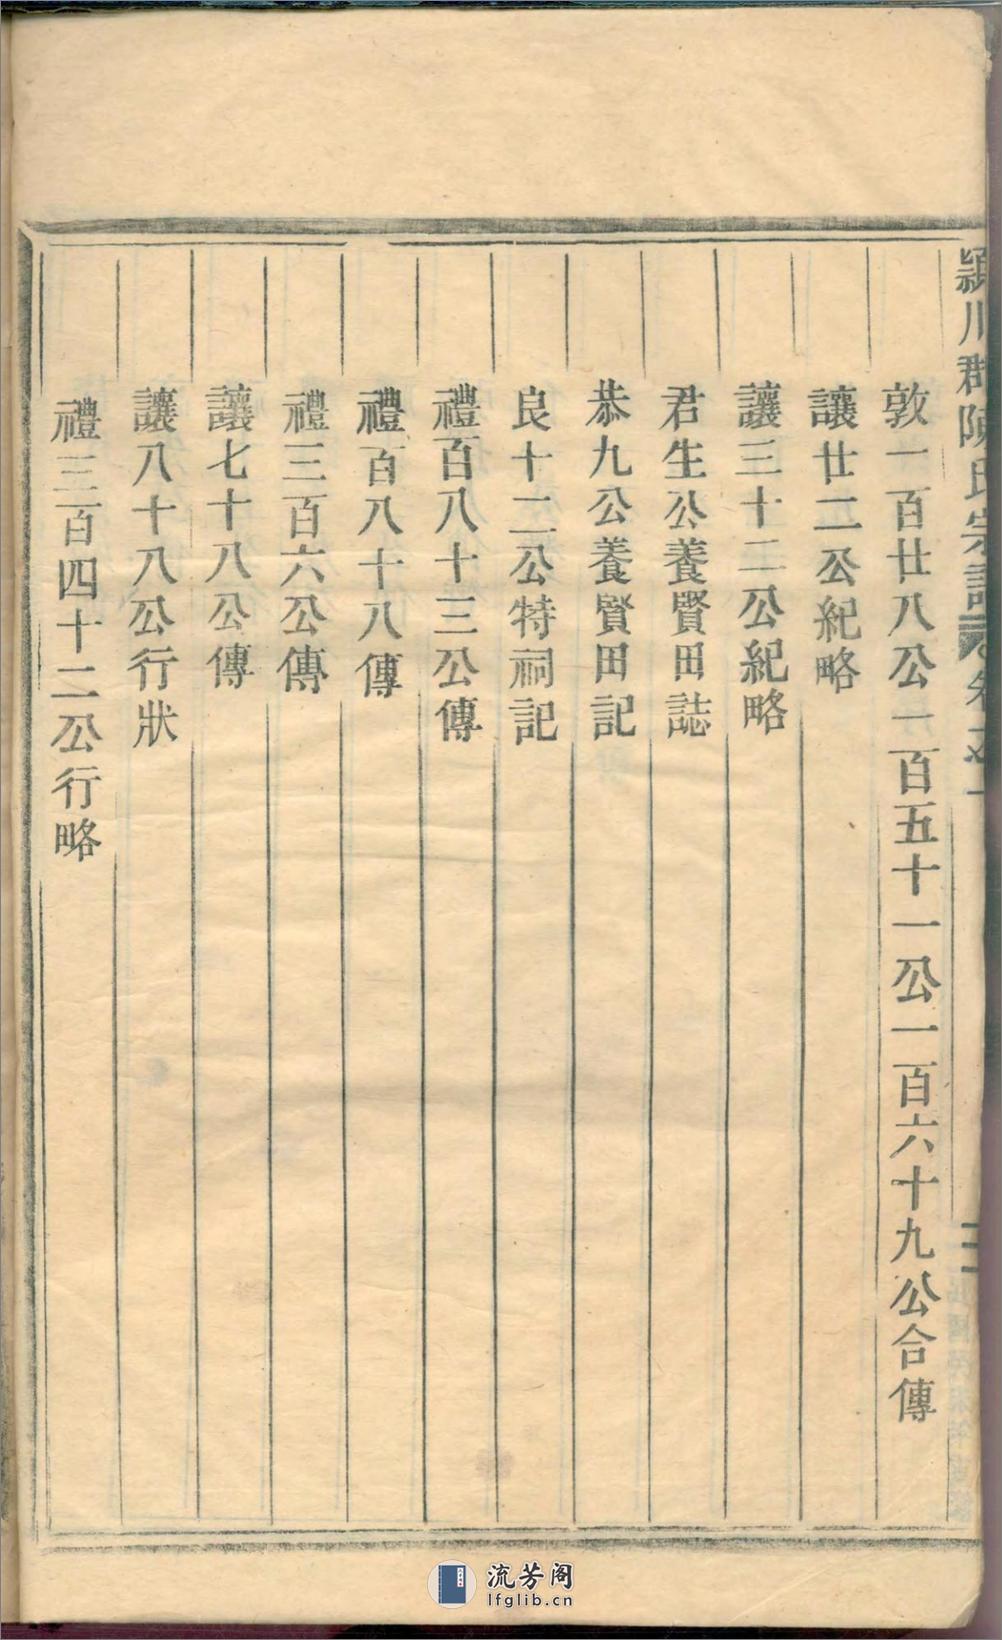 潁川郡陳氏宗譜 卷之一
敦一百廿八公一百五十一公一百六十九公合傳
讓廿二公紀略
讓三十二公紀略
君生公養賢田誌
恭九公養賢田記
良十二公特祠記
禮百八十三公傳
禮百八十八傳
禮三百六公傳
讓七十八公傳
讓八十八公行狀
禮三百四十二公行略
流芳阁
lfglib.cn